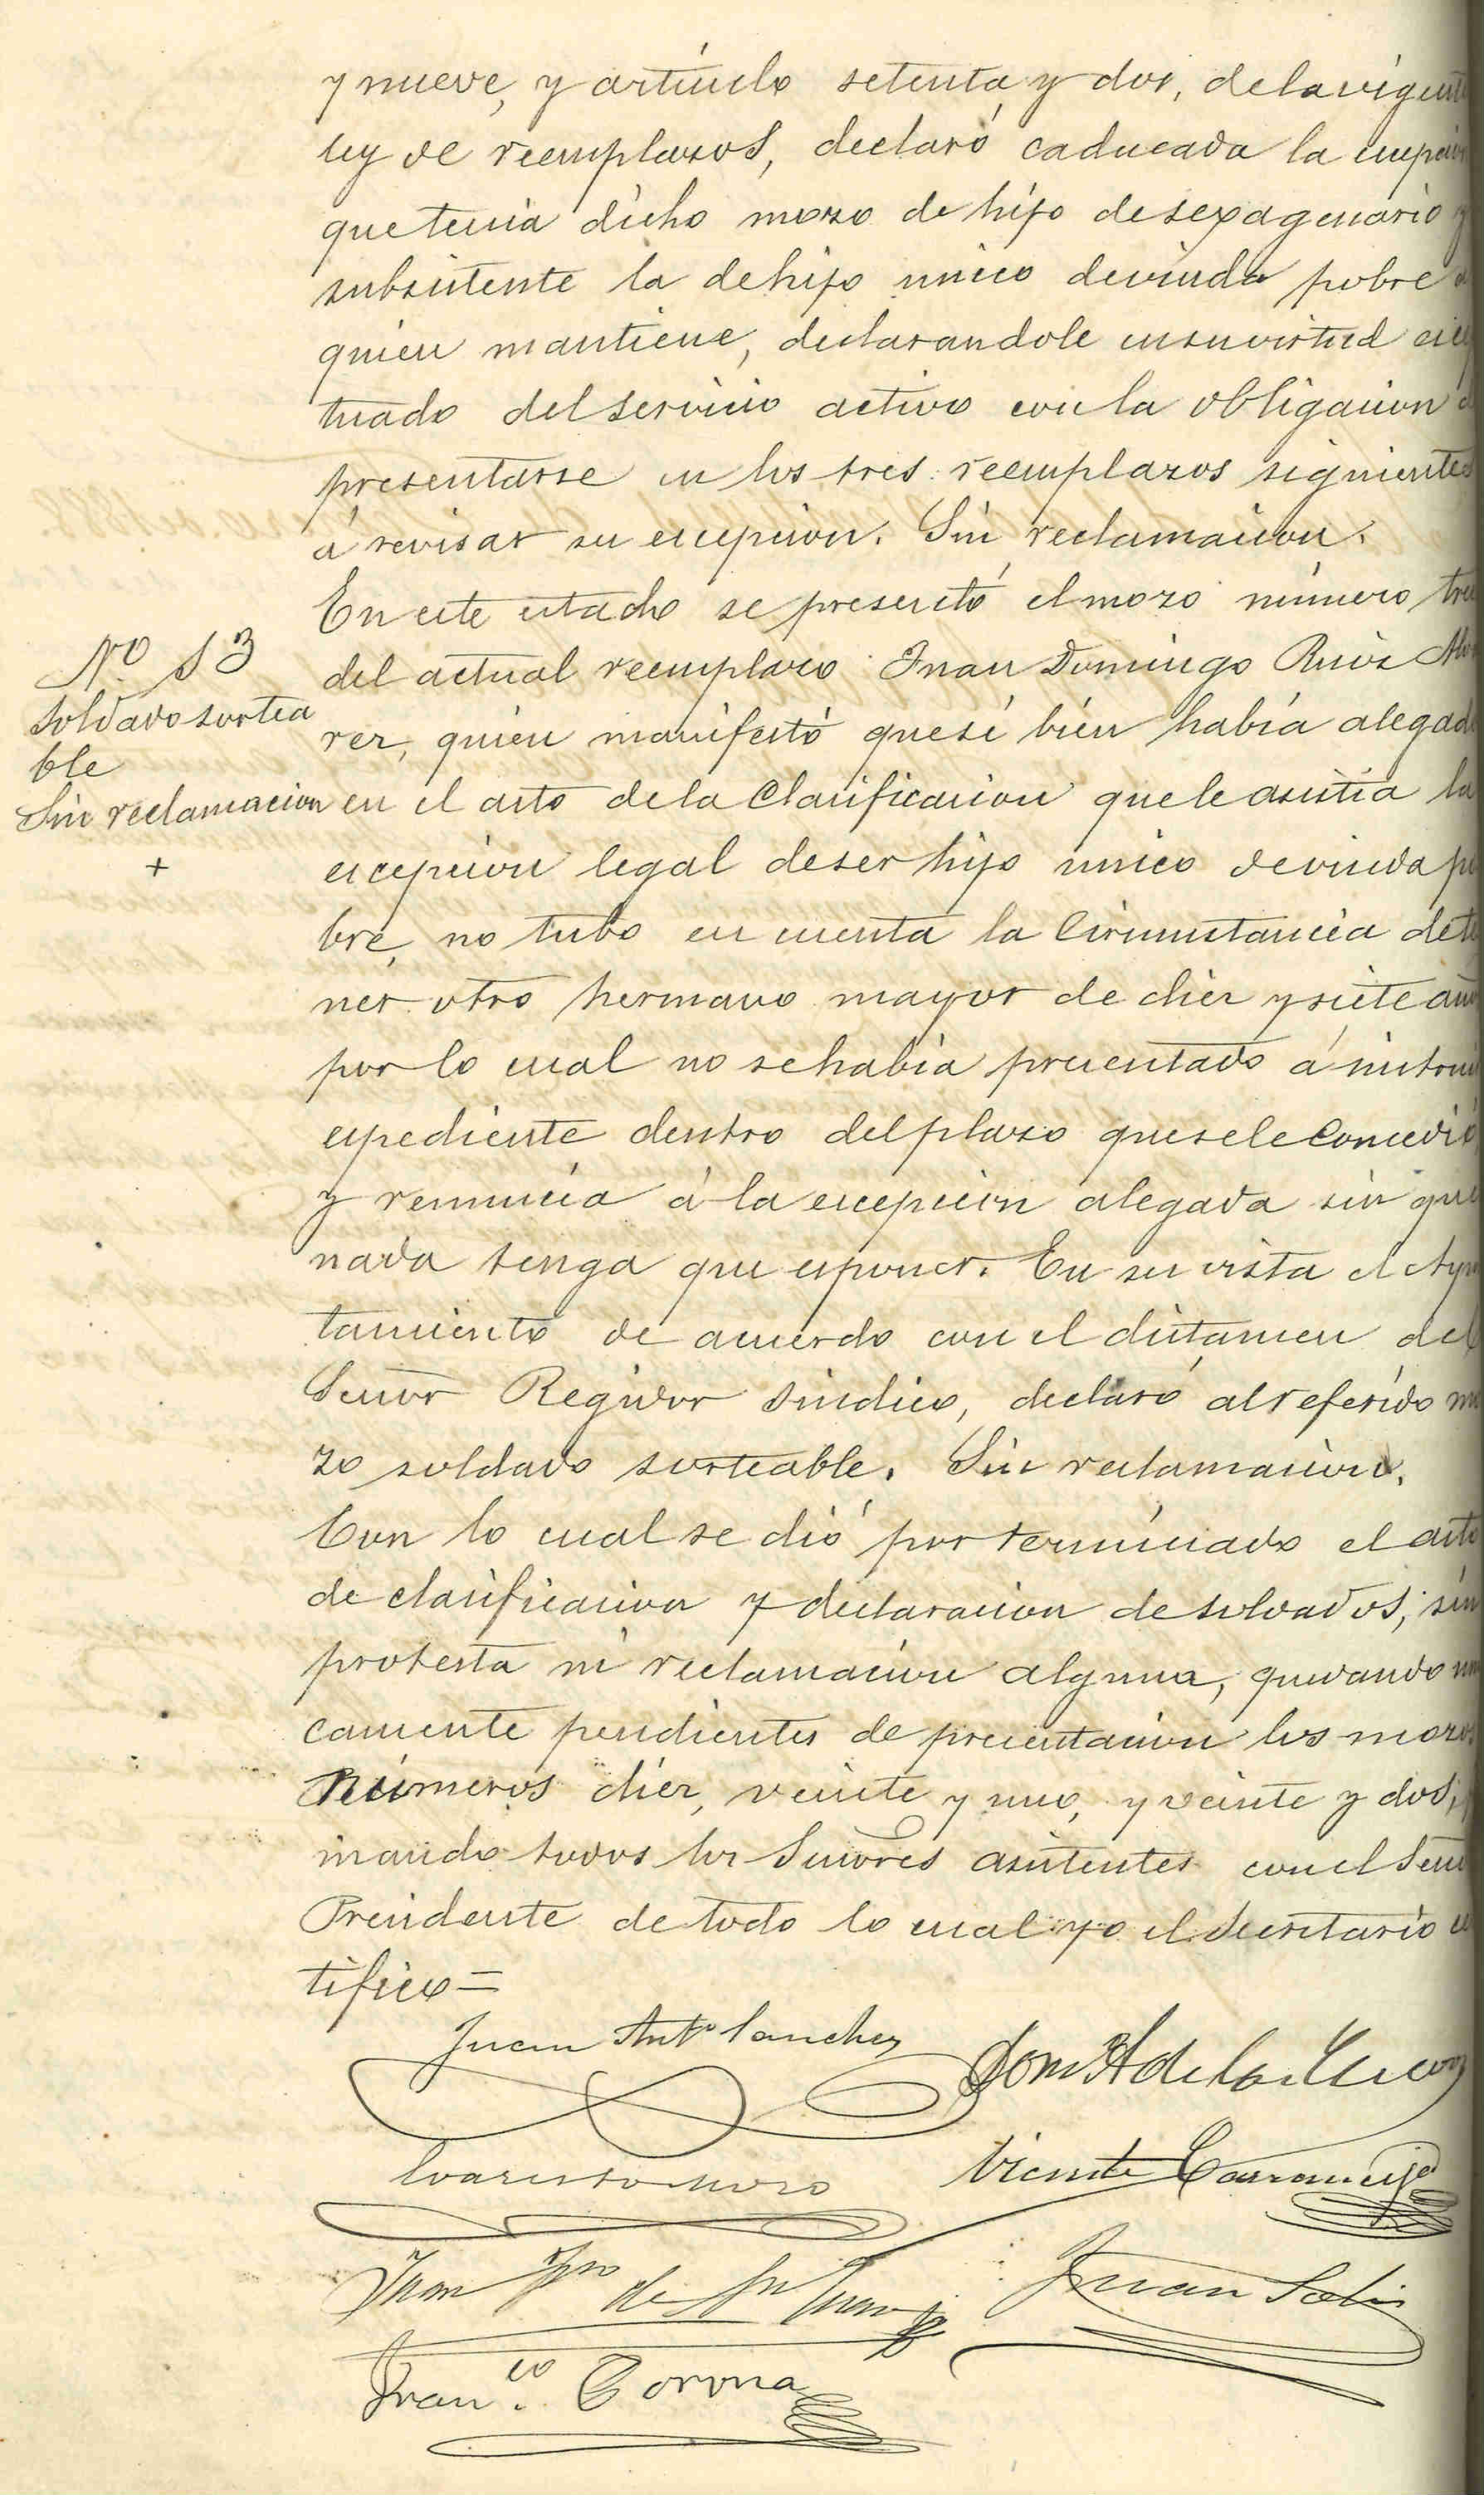 y nueve, y artículo setenta y dos, de la vigente
ley de reemplazos, declaró caducada la
que tenia dicho mozo de hijo de sexagenario y
subsistente la de hijo unico de viuda pobre á
quien mantiene, declarandole en su virtud
tuado del servicio activo con la obligacion
presentarse en los tres reemplazos siguientes
á revisar su excepcion. Sin reclamacion.
En este estado se presentó el mozo número
Nº 13
soldado sortea
ble
Sin reclamacion
+
del actual reemplazo Juan Domingo Ruiz
rez, quien manifestó que si bién había alegado
en el acto de la Clasificacion que le asistia la
excepcion legal de ser hijo unico de viuda po
bre, no tubo en cuenta la Circunstancia de te
ner otro hermano mayor de diez y siete
por lo cual no se habia presentado á
espediente dentro del plazo que se le Concedió
y renuncia á la excepcion alegada sin que
nada tenga que esponer. En su vista el Ayun
tamiento de acuerdo con el dictamen del
Señor Regidor Sindico, declaró al referido mo
zo soldado sorteable. Sin reclamacion.
Con lo cual se dió por terminado el acto
de clasificacion y declaracion de soldados, sin
protesta ni reclamacion alguna, quedando
camente pendientes de presentacion los mozos
Números diez, veinte y uno, y veinte y dos,
mando todos los Señores asistentes con el Señor
Presidente de todo lo cual yo el Secretario
tifico=
Juan Antº Sanchez
de la Cueva
Evaristo Moro
Vicente
Juan
Juan Solis
Franco. Corona